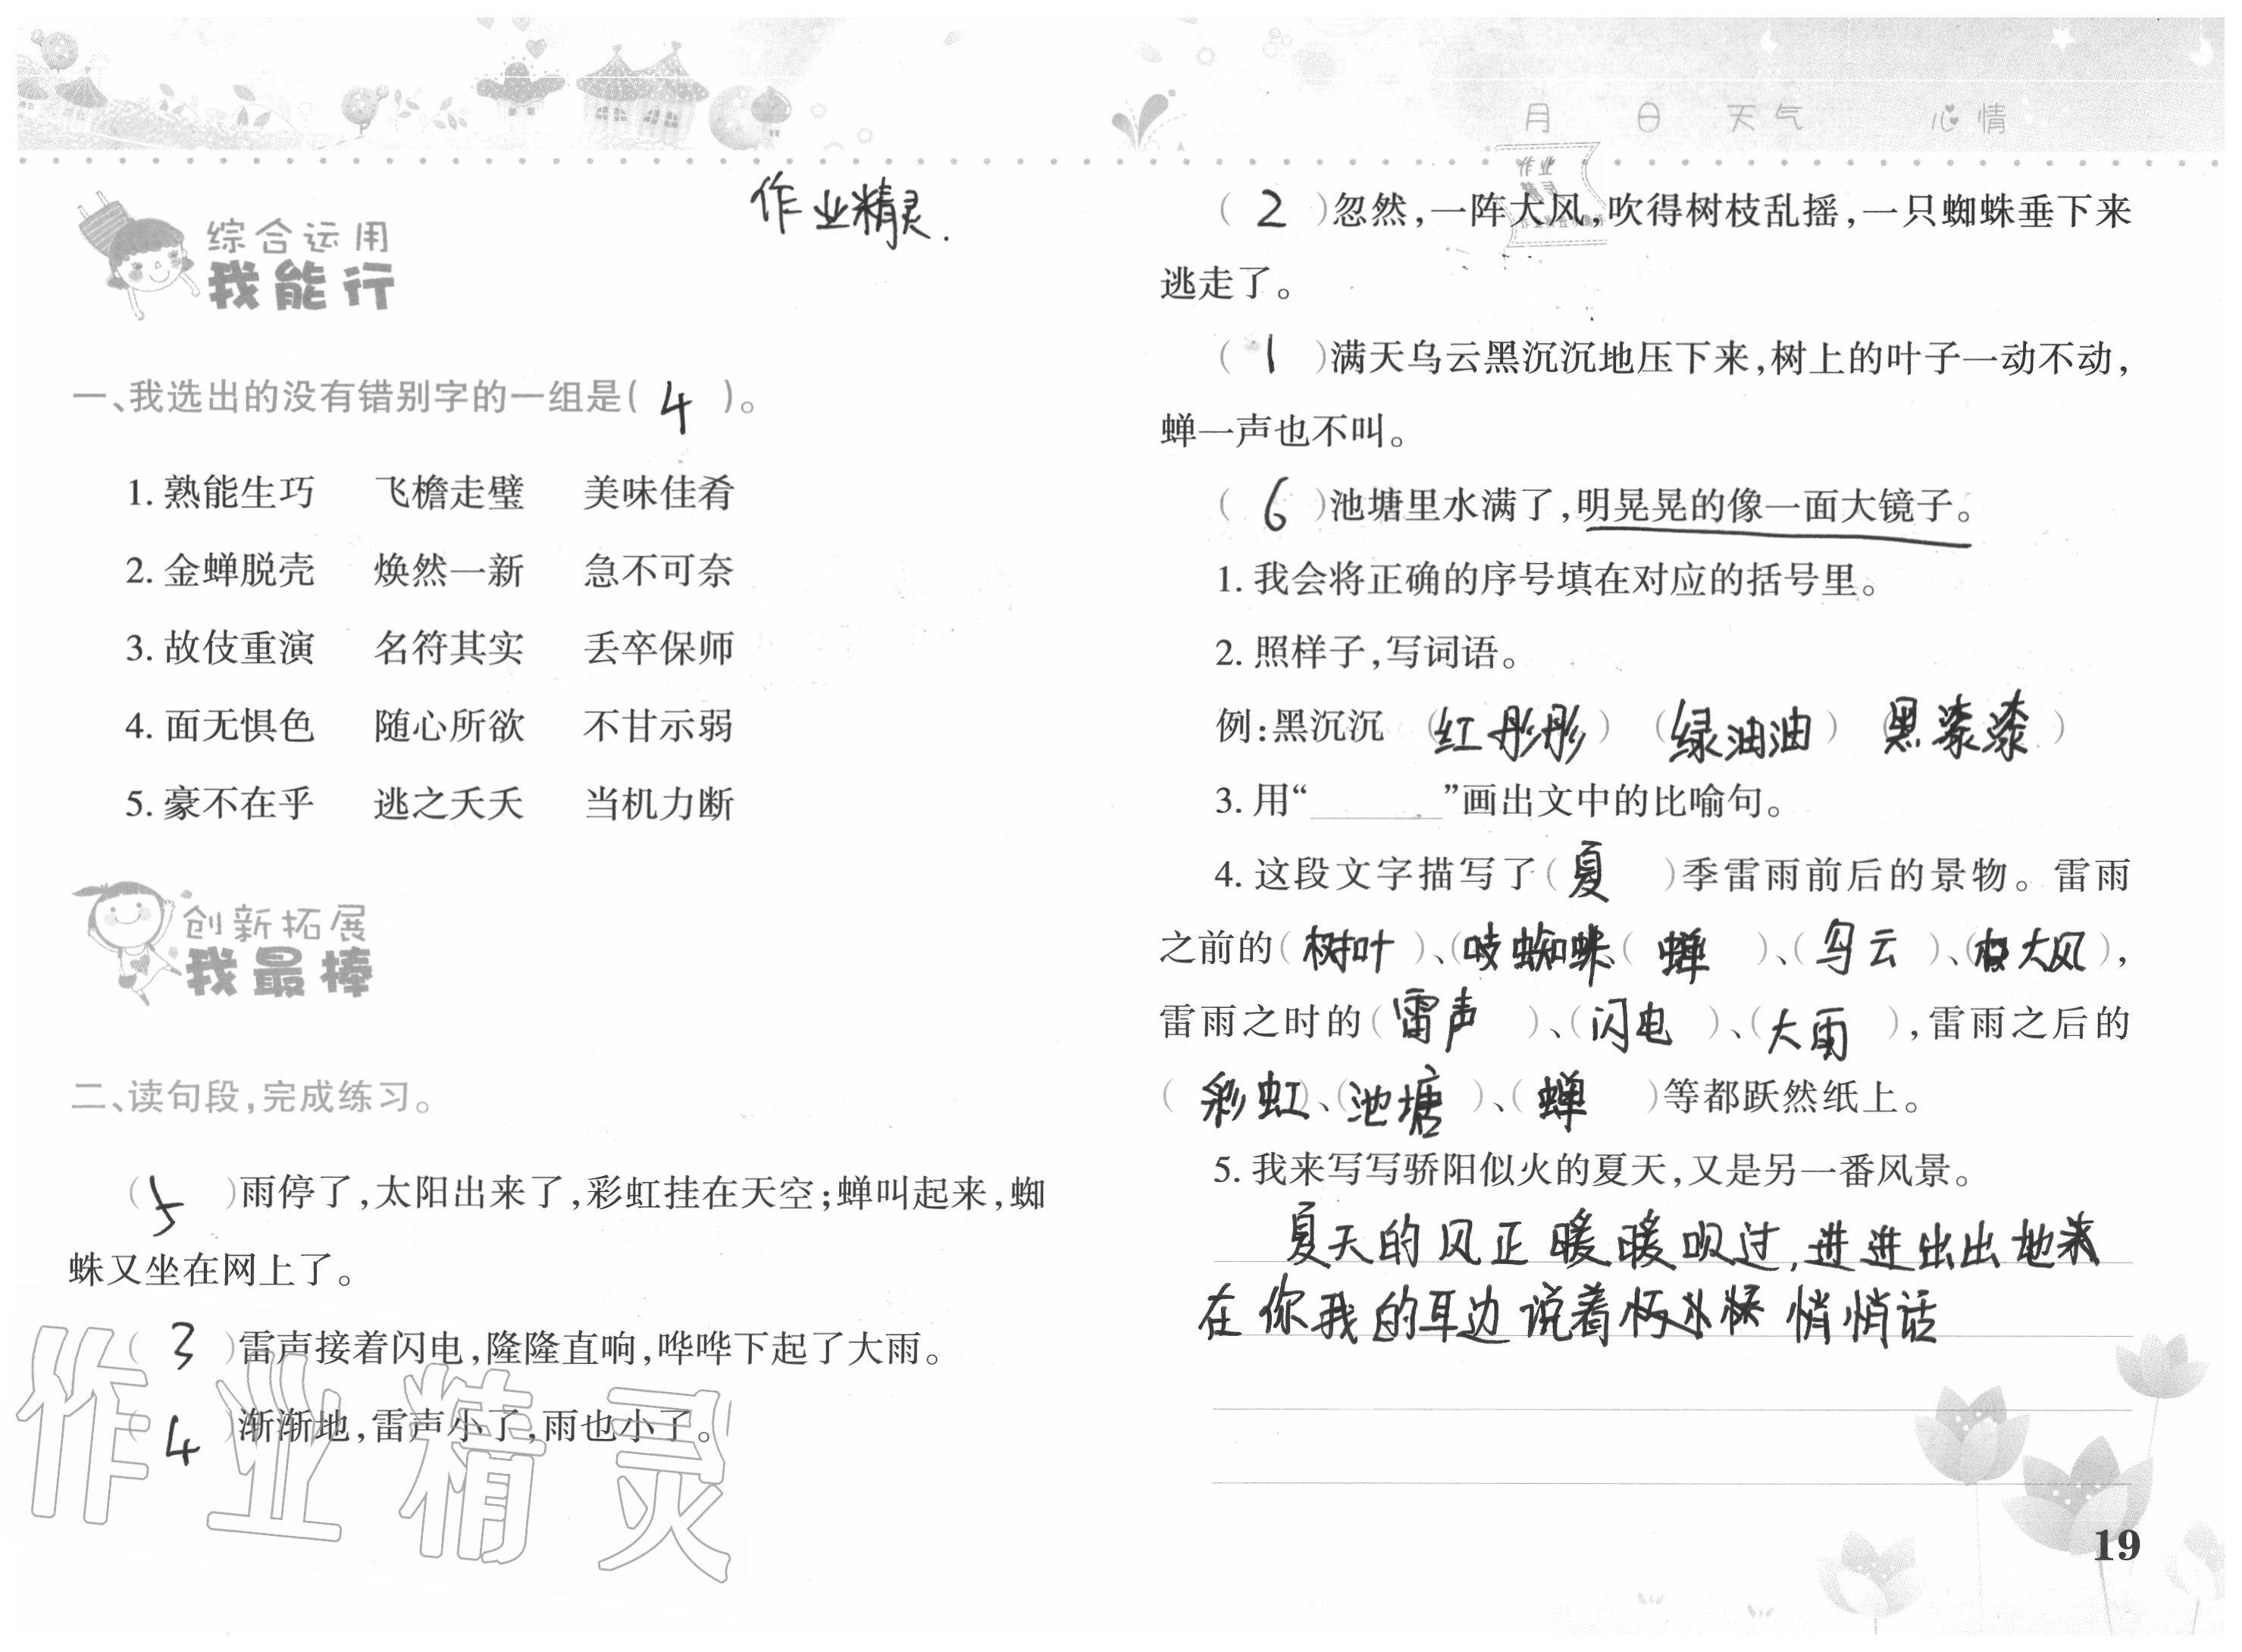 月 日 天气 心情
作业精灵.
综合运用
我能行
一、我选出的没有错别字的一组是( 4 )。
1. 熟能生巧 飞檐走璧 美味佳肴
2. 金蝉脱壳 焕然一新 急不可奈
3. 故伎重演 名符其实 丢卒保师
4. 面无惧色 随心所欲 不甘示弱
5. 豪不在乎 逃之夭夭 当机力断
创新拓展
我最棒
二、读句段,完成练习。
( 5 )雨停了,太阳出来了,彩虹挂在天空;蝉叫起来,蜘
蛛又坐在网上了。
( 3 )雷声接着闪电,隆隆直响,哗哗下起了大雨。
( 4 )渐渐地,雷声小了,雨也小了。
作业精灵
作业
( 2 )忽然,一阵大风,吹得树枝乱摇,一只蜘蛛垂下来
逃走了。
( 1 )满天乌云黑沉沉地压下来,树上的叶子一动不动,
蝉一声也不叫。
( 6 )池塘里水满了,明晃晃的像一面大镜子。
1. 我会将正确的序号填在对应的括号里。
2. 照样子,写词语。
例:黑沉沉 (红彤彤) (绿油油) (黑漆漆)
3. 用“______”画出文中的比喻句。
4. 这段文字描写了( 夏 )季雷雨前后的景物。雷雨
之前的( 树叶 )、( 蜘蛛 )、( 蝉 )、( 乌云 )、( 大风 ),
雷雨之时的( 雷声 )、( 闪电 )、( 大雨 ),雷雨之后的
( 彩虹 )、( 池塘 )、( 蝉 )等都跃然纸上。
5. 我来写写骄阳似火的夏天,又是另一番风景。
夏天的风正暖暖吹过,进进出出地
在你我的耳边说着 悄悄话
19